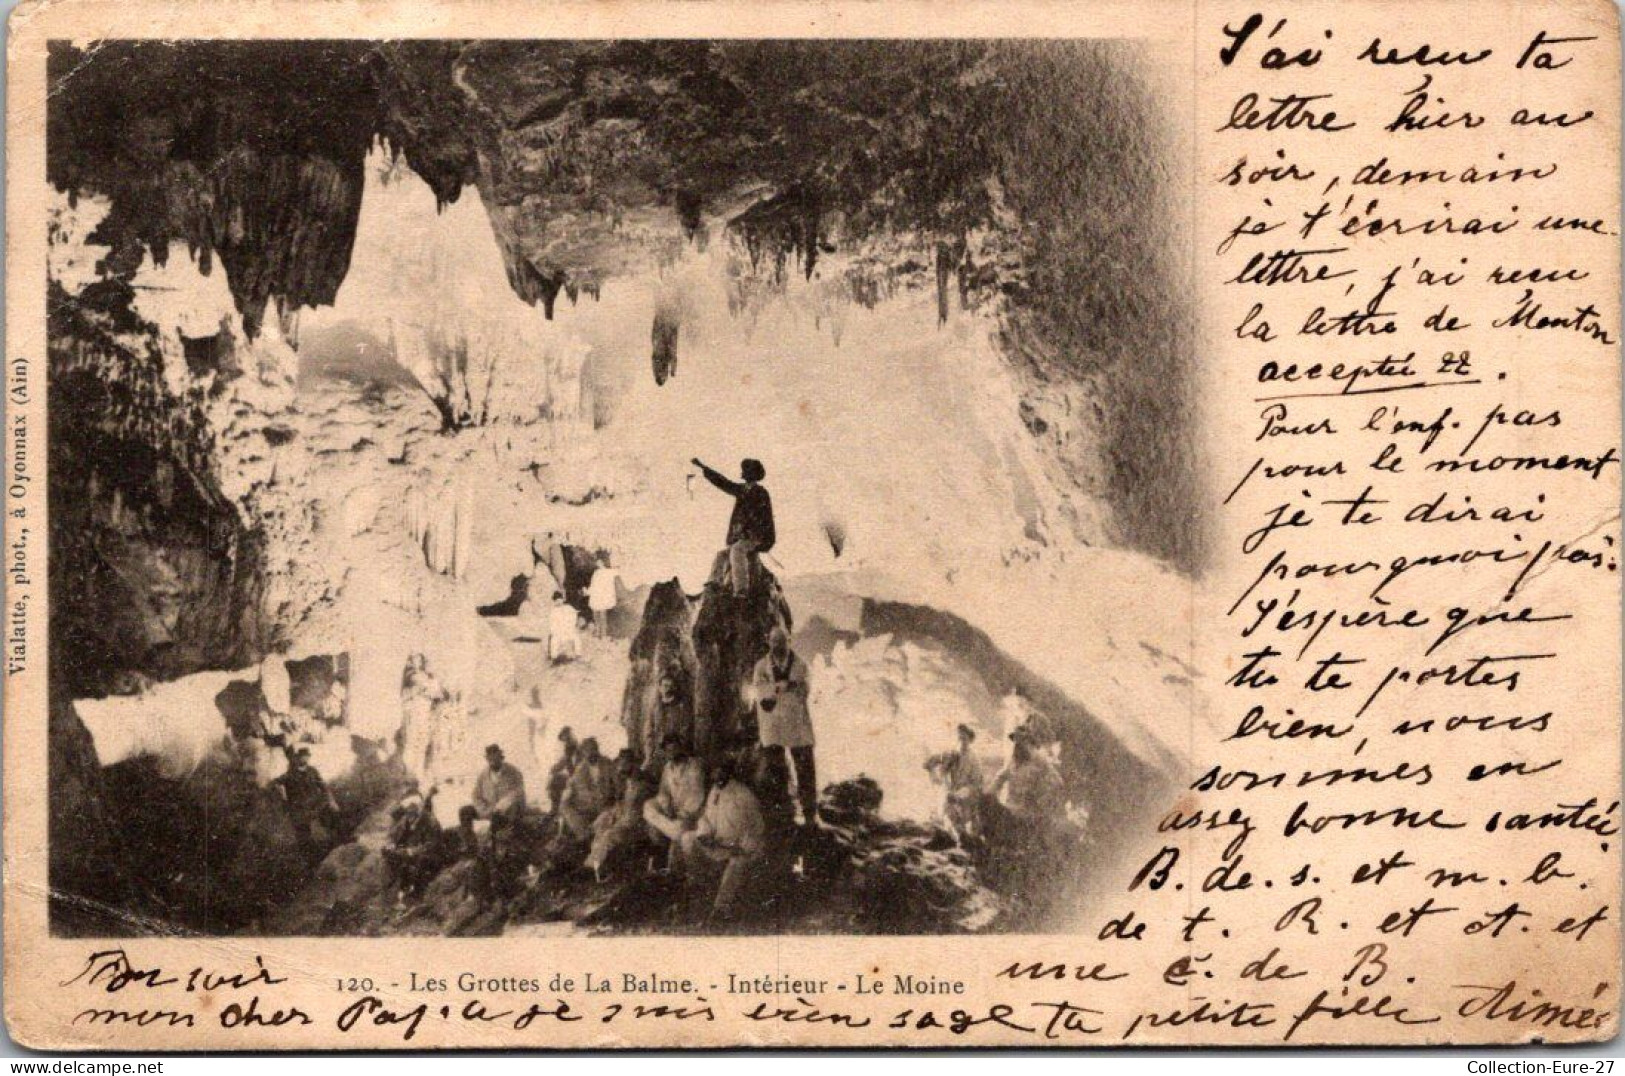 J'ai reçu ta
lettre hier au
soir, demain
je t'écrirai une
lettre, j'ai reçu
la lettre de Menton
acceptée
Pour l'enf. pas
pour le moment
je te dirai
pourquoi pas.
J'espère que
tu te portes
bien, nous
sommes en
assez bonne santée
B. de. s. et m. b.
de t. R. et A. et
une c. de B.
Bonsoir
mon cher Papa je suis bien sage ta petite fille Aimée
120. - Les Grottes de La Balme. - Intérieur - Le Moine
Vialatte, phot., à Oyonnax (Ain)
Collection-Eure-27